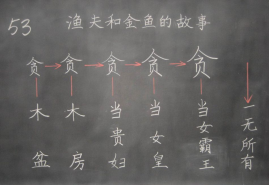 53 渔夫和金鱼的故事
贪 贪 贪 贪 贪
木盆
木房
当贵妇
当女皇
当女霸王
一无所有